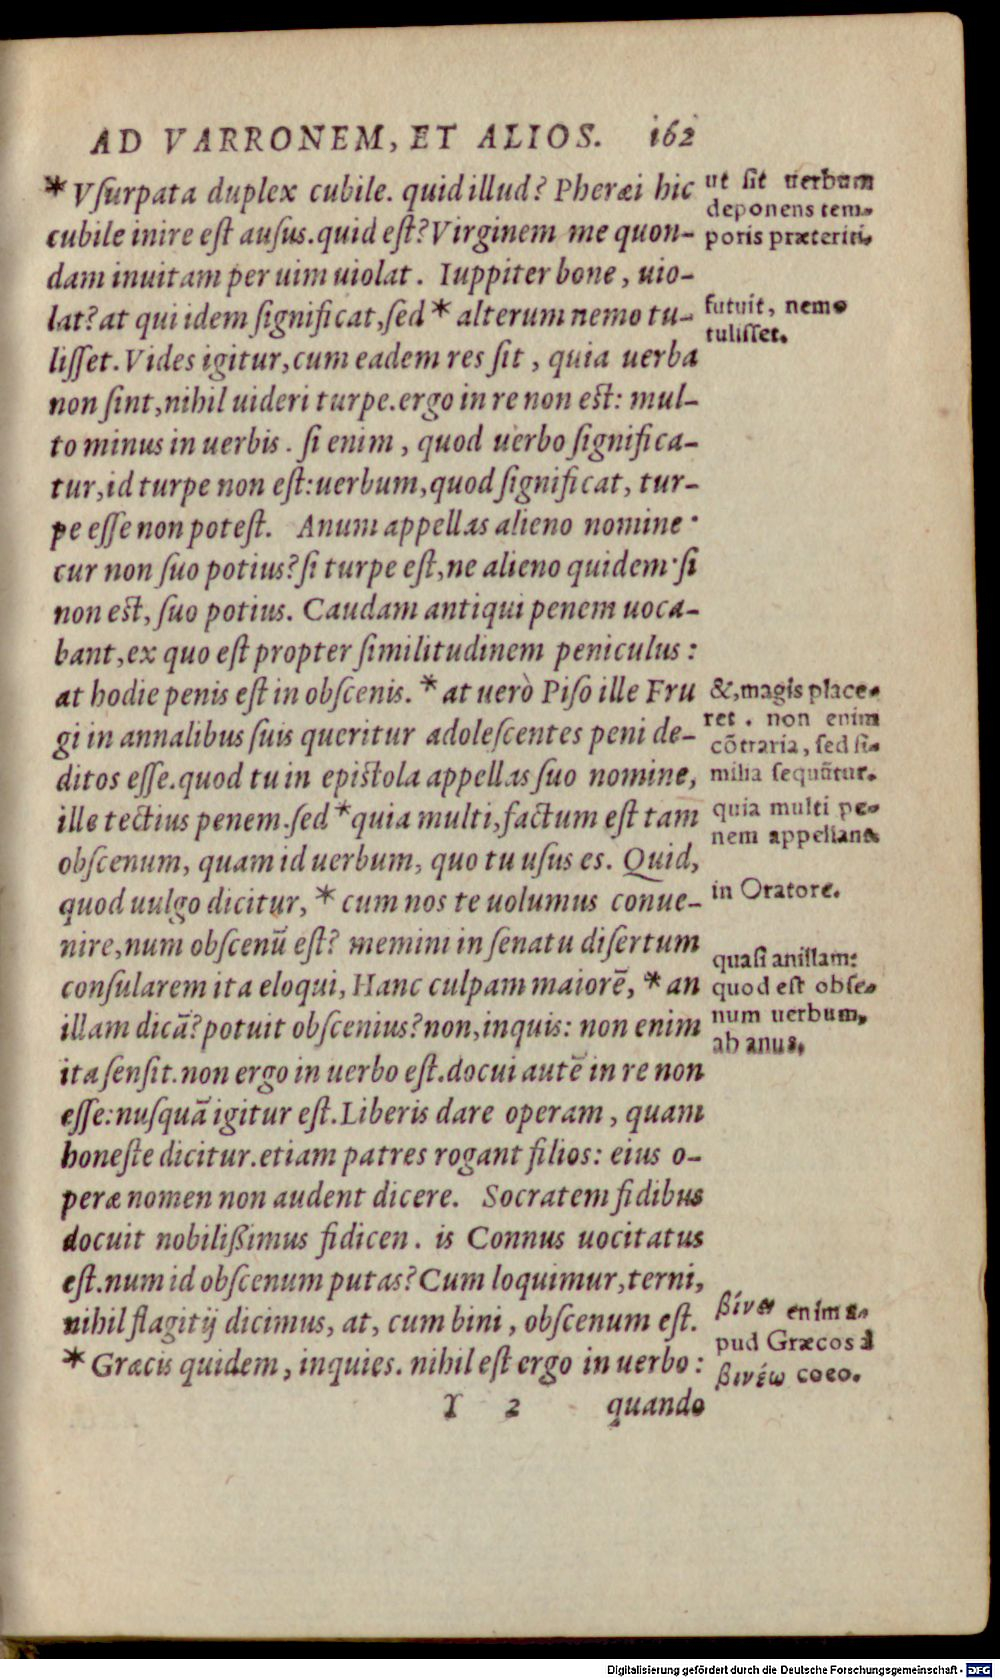 AD VARRONEM, ET ALIOS. 162
* Vſurpata duplex cubile. quid illud? Pheræi hic
cubile inire eſt auſus. quid eſt? Virginem me quon-
dam inuitam per uim uiolat. Iuppiter bone, uio-
lat? at qui idem ſignificat, ſed * alterum nemo tu-
liſſet. Vides igitur, cum eadem res ſit, quia uerba
non ſint, nihil uideri turpe. ergo in re non eſt: mul-
to minus in uerbis. ſi enim, quod uerbo ſignifica-
tur, id turpe non eſt: uerbum, quod ſignificat, tur-
pe eſſe non poteſt. Anum appellas alieno nomine·
cur non ſuo potius? ſi turpe eſt, ne alieno quidem·ſi
non eſt, ſuo potius. Caudam antiqui penem uoca-
bant, ex quo eſt propter ſimilitudinem peniculus:
at hodie penis eſt in obſcenis. * at uerò Piſo ille Fru
gi in annalibus ſuis queritur adoleſcentes peni de-
ditos eſſe. quod tu in epiſtola appellas ſuo nomine,
ille tectius penem. ſed * quia multi, factum eſt tam
obſcenum, quam id uerbum, quo tu uſus es. Quid,
quod uulgo dicitur, * cum nos te uolumus conue-
nire, num obſcenũ eſt? memini in ſenatu diſertum
conſularem ita eloqui, Hanc culpam maiorẽ, * an
illam dicã? potuit obſcenius? non, inquis: non enim
ita ſenſit. non ergo in uerbo eſt. docui autẽ in re non
eſſe: nuſquã igitur eſt. Liberis dare operam, quam
honeſte dicitur. etiam patres rogant filios: eius o-
peræ nomen non audent dicere. Socratem fidibus
docuit nobilißimus fidicen. is Connus uocitatus
eſt. num id obſcenum putas? Cum loquimur, terni,
nihil flagitij dicimus, at, cum bini, obſcenum eſt.
* Græcis quidem, inquies. nihil eſt ergo in uerbo:
Y 2 quando
ut ſit uerbum
deponens tem-
poris præteriti.
futuit, nemo
tuliſſet.
&, magis place-
ret. non enim
cõtraria, ſed ſi-
milia ſequũtur.
quia multi pe-
nem appellant.
in Oratore.
quaſi anillam:
quod eſt obſe-
num uerbum,
ab anus.
βίνει enim a-
pud Græcos à
βινέω coeo.
Digitalisierung gefördert durch die Deutsche Forschungsgemeinschaft - DFG